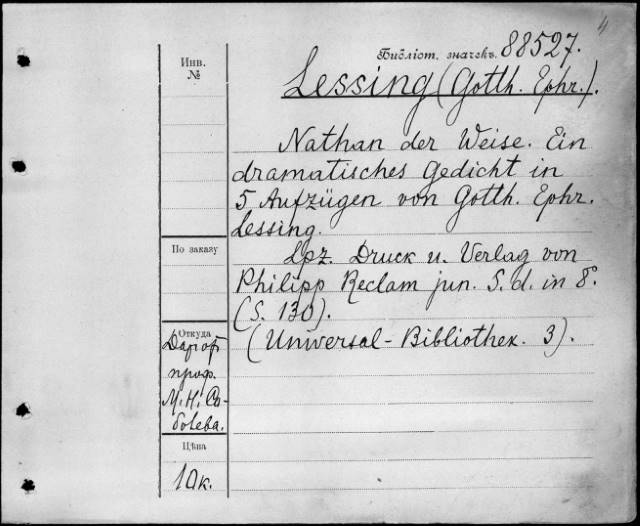 4
Библіот. значекъ. 88527.
Инв.
№
Lessing (Gotth. Ephr.).
Nathan der Weise. Ein
dramatisches Gedicht in
5 Aufzügen von Gotth. Ephr.
Lessing.
По заказу
Lpz. Druck u. Verlag von
Philipp Reclam jun. S. d. in 8°.
(S. 130).
(Universal-Bibliothek. 3).
Откуда
проф.
М. Н. Со-
болева.
Цѣна
10к.